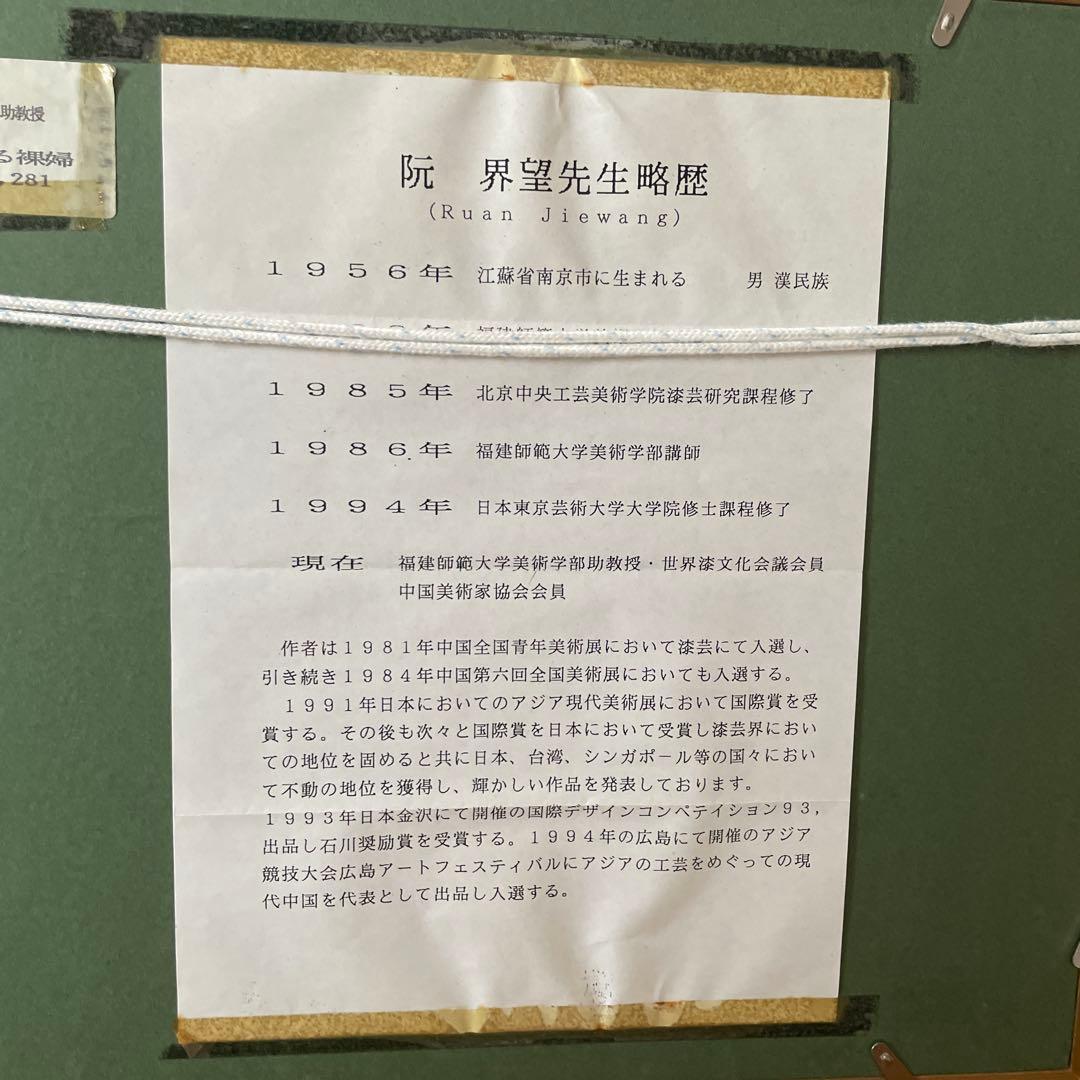 助教授
る裸婦
281
阮　界望先生略歴
(Ruan Jiewang)
1956年 江蘇省南京市に生まれる 男 漢民族
1985年 北京中央工芸美術学院漆芸研究課程修了
1986年 福建師範大学美術学部講師
1994年 日本東京芸術大学大学院修士課程修了
現在 福建師範大学美術学部助教授・世界漆文化会議会員
中国美術家協会会員
作者は1981年中国全国青年美術展において漆芸にて入選し、
引き続き1984年中国第六回全国美術展においても入選する。
1991年日本においてのアジア現代美術展において国際賞を受
賞する。その後も次々と国際賞を日本において受賞し漆芸界におい
ての地位を固めると共に日本、台湾、シンガポール等の国々におい
て不動の地位を獲得し、輝かしい作品を発表しております。
1993年日本金沢にて開催の国際デザインコンペテイション93,
出品し石川奨励賞を受賞する。1994年の広島にて開催のアジア
競技大会広島アートフェスティバルにアジアの工芸をめぐっての現
代中国を代表として出品し入選する。